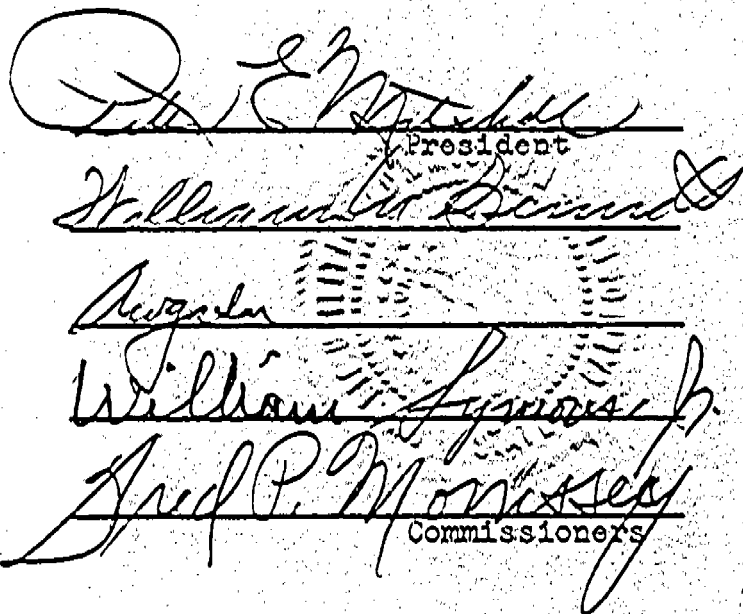 Peter E Mitchell
President
William M Bennett
William Symons, Jr.
Fred P. Morrissey
Commissioners